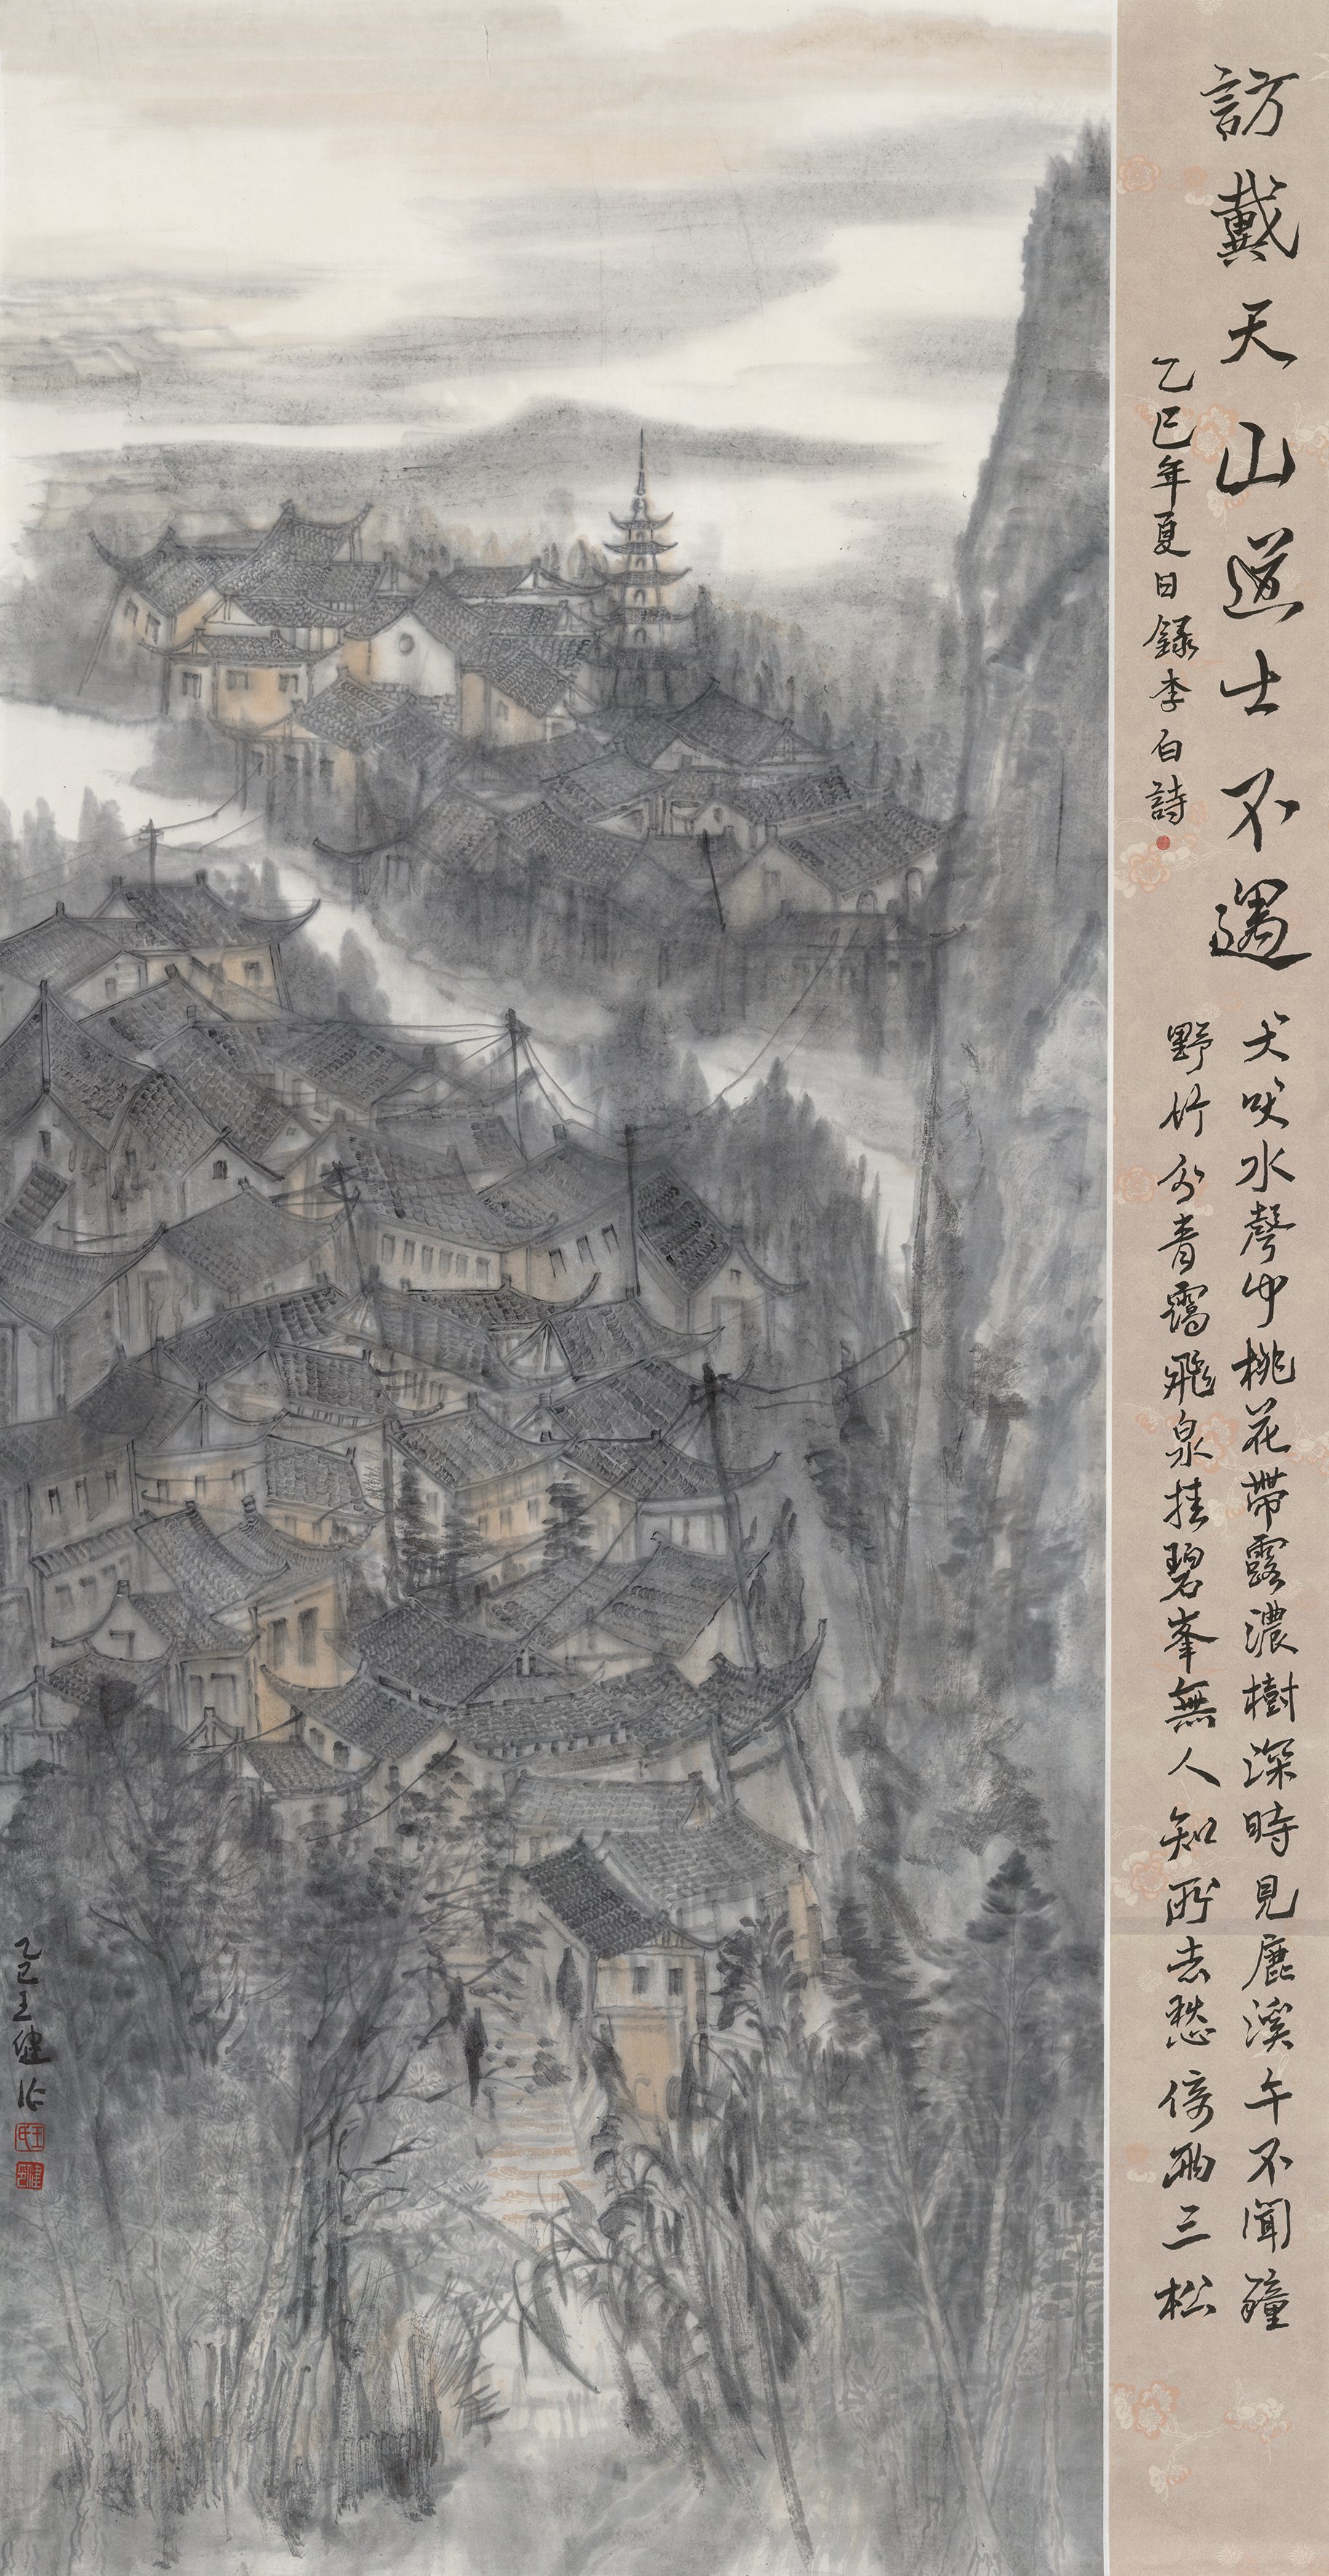 訪戴天山道士不遇
犬吠水聲中桃花帶露濃樹深時見鹿溪午不聞鐘
野竹分青靄飛泉挂碧峯無人知所去愁倚兩三松
乙巳年夏日録李白詩
乙巳王健作